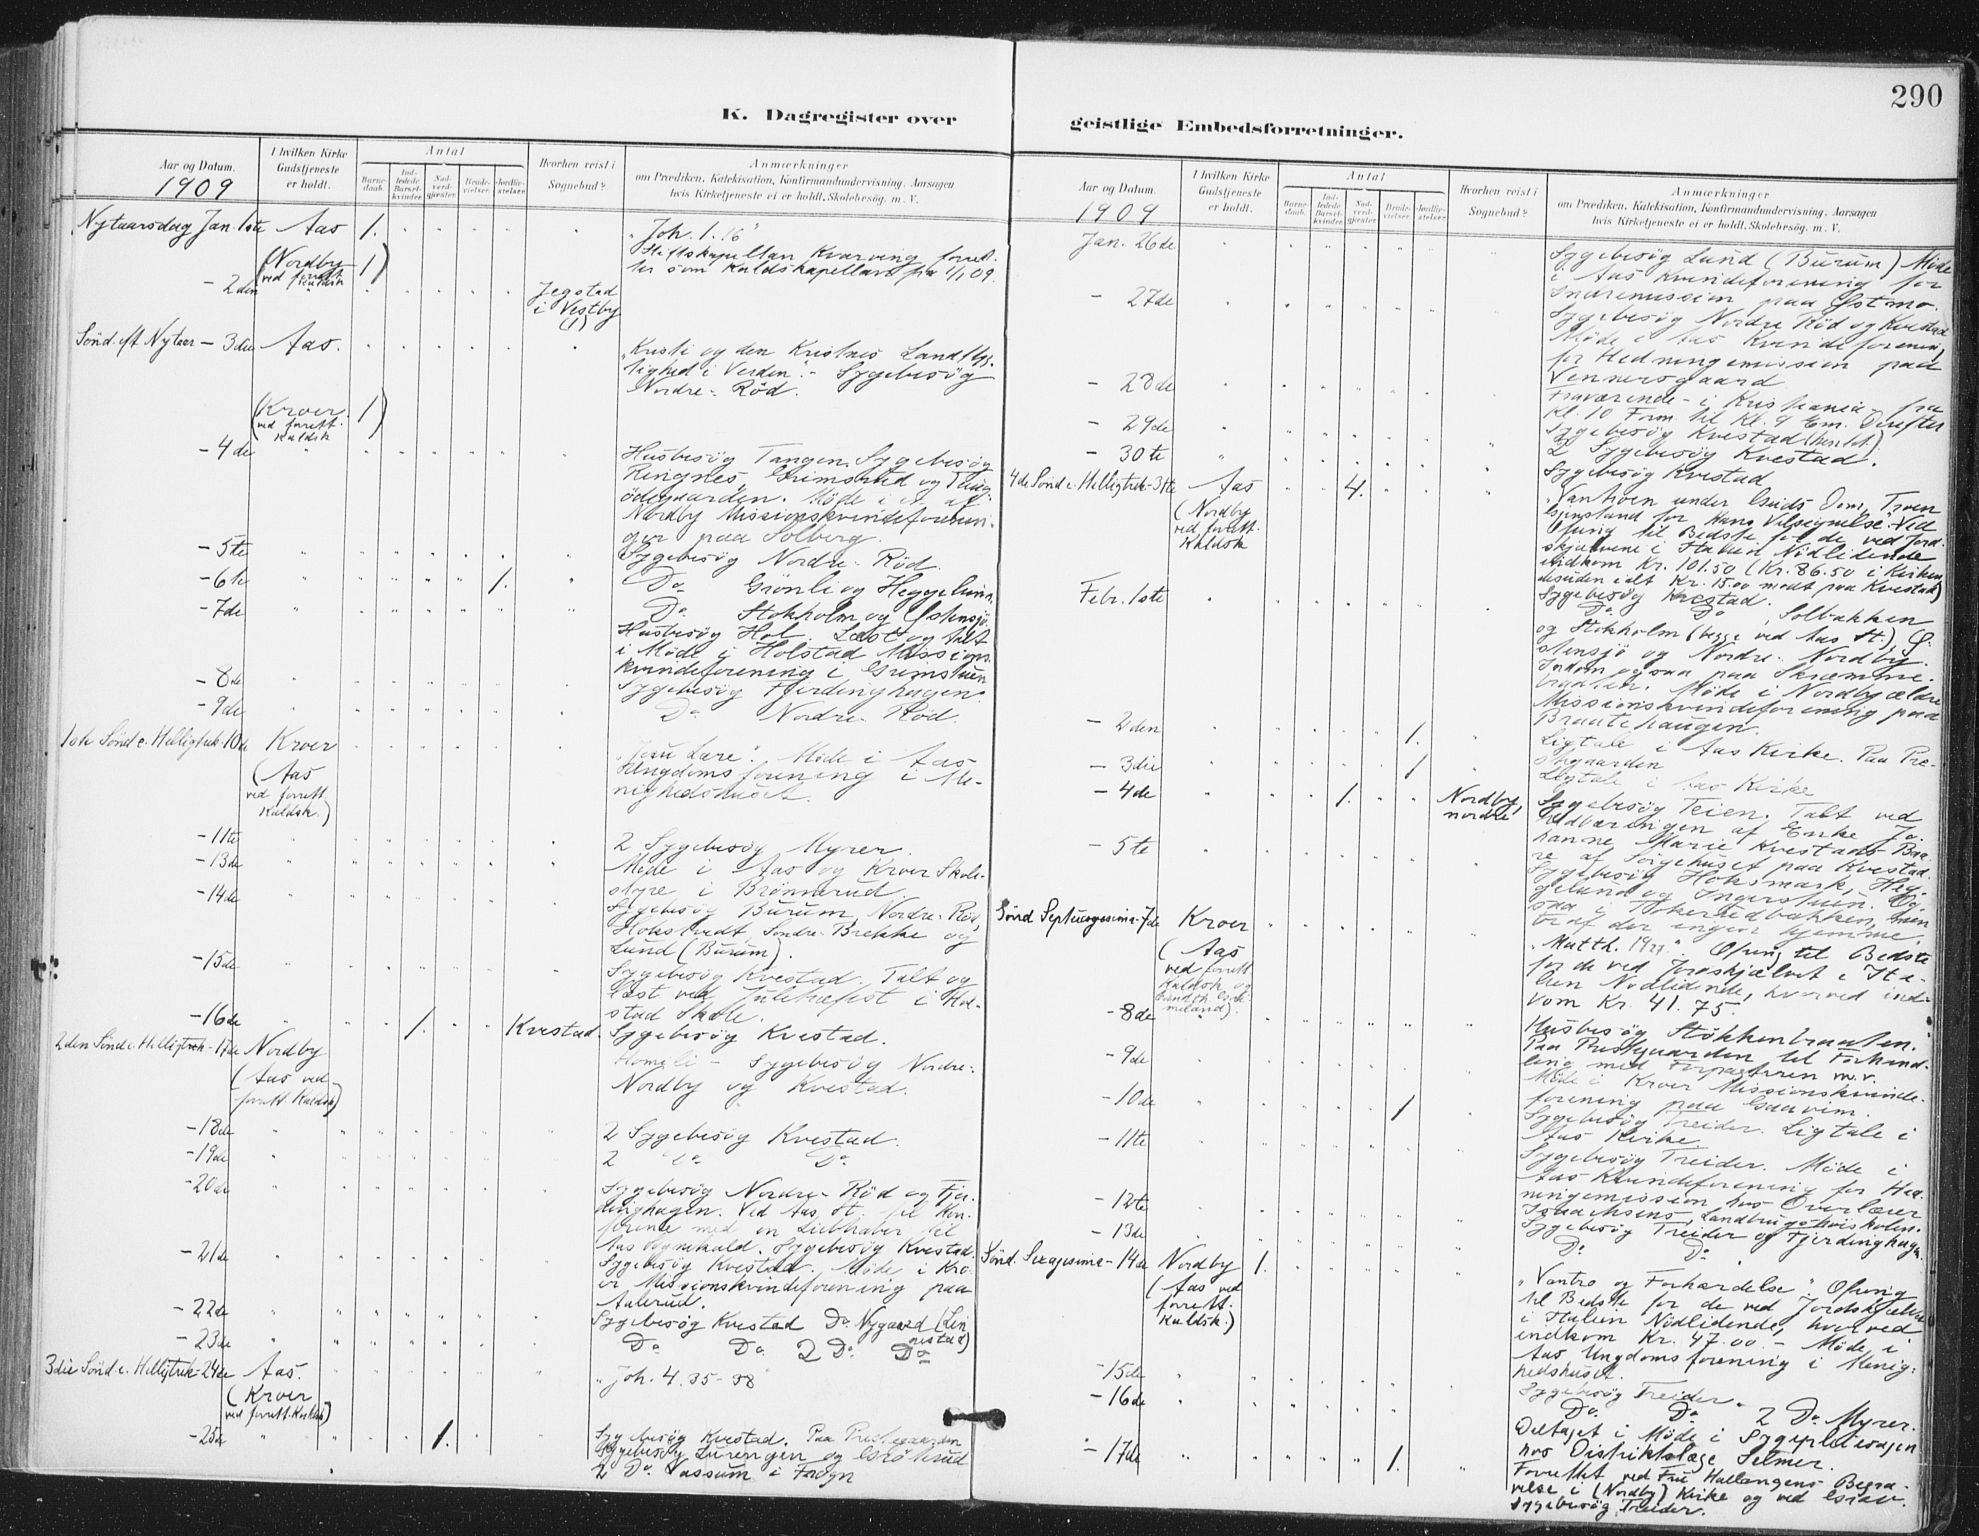 290
K. Dagregister over geistlige Embedsforretninger.
Aar og Datum.
1909
I hvilken Kirke Gudstjeneste er holdt.
Antal
Barnedaab.
Indledede Barselkvinder
Nadverdgjester
Brudevielser.
Jordfæstelser.
Hvorhen reist i Sognebud?
Anmærkninger
om Prædiken, Katekisation, Konfirmandundervisning. Aarsagen
hvis Kirketjeneste ei er holdt. Skolebesøg. m. V.
Nytaarsdag Jan. 1ste Aas 1. "Joh. 1. 16"
(Nordby 1) Stiftskapellan Kvarving forret-
ved forrett. Kaldsk
ter som Kaldskapellan fra 1/1 09.
- 2den Jegstad
i Vestby
(1)
Sönd. eft Nytaar - 3die Aas. "Kristi og den Kristnes
i Verden". - Sygebesög
Nordre-Röd.
(Kroer 1)
ved forrett.
Kaldsk
- 4de Husbesög Tangen. Sygebesög
Ringnes, Grimsrud og
ödegaarden. Möde i et af
Nordby Missionskvindeforenin-
ger paa Solberg.
- 5te Sygebesög Nordre-Röd.
- 6te 1. Do Grönli og Heggelund
- 7de Do Stokholm og Östensjö.
Husbesög Hol. Læst og talt
i Möde i Holstad Missions
kvindeforening i Grimstuen
- 8de Sygebesög Fjerdinghagen.
- 9de Do Nordre-Röd.
1ste Sönd e. Helligtrek. 10de Kroer "Jesu Lære". Möde i Aas
(Aas
ved forrett.
Kaldsk.)
Ungdomsforening i Me-
nighedshuset.
- 11te 2 Sygebesög Myrer.
- 13de Möde i Aas og Kroer Skole-
styre i Brönnerud
- 14de Sygebesög Burum, Nordre-Röd,
Holstvedt Söndre-Brekke og
Lund (Burum).
- 15de Sygebesög Kvestad. Talt og
læst ved Juletræfest i Hol-
stad Skole.
- 16de 1. Kvestad. Sygebesög Kvestad.
2den Sönd e. Helligtrek - 17de Nordby Homili - Sygebesög Nordre-
(Aas ved
forrett. Kaldsk)
Nordby og Kvestad.
- 18de 2 Sygebesög Kvestad.
- 19de 2 Do Do
- 20de Sygebesög Nordre-Röd og Fjer-
dinghagen. Ved Aas St. til Kon-
ferense med en Liebhaber til
Aas Sognekald. Sygebesög Kvestad.
- 21de Sygebesög Kvestad. Möde i Kro-
er Missionskvindeforening paa
Aalerud.
- 22de Sygebesög Kvestad Do Nygaard
- 23de Do Do 2 Do Do
3die Sönd e. Helligtrek - 24de Aas. "Joh. 4. 35-38"
(Kroer
ved forrett. Kaldsk)
- 25de 1. Sygebesög Kvestad. Paa Prestegaarden
Sygebesög og
2 Do i Frogn
Aar og Datum.
1909
I hvilken Kirke Gudstjeneste er holdt.
Antal
Barnedaab.
Indledede Barselkvinder
Nadverdgjester
Brudevielser.
Jordfæstelser.
Hvorhen reist i Sognebud?
Anmærkninger
om Prædiken, Katekisation, Konfirmandundervisning. Aarsagen
hvis Kirketjeneste ei er holdt. Skolebesög. m. V.
Jan. 26de Sygebesög Lund (Burum) Möde
i Aas Kvindeforening for
Indremission paa Östmo.
- 27de Sygebesög Nordre Röd og Kvestad
Möde i Aas Kvindeforening
for Hedningemission paa
Vennersgaard
- 28de Fraværende - i Kristiania - fra
Kl. 10 Form. til Kl. 9 Em. Derefter
Sygebesög Kvestad (hentet.)
- 29de 2 Sygebesög Kvestad.
- 30te Sygebesög Kvestad
4de Sönd e. Helligtrek - 31te Aas 4. "Vantroen under Guds Dom, Troen
(Nordby
ved forrett.
Kaldsk
Gjenstand for Hans Velsignelse". Ved
Ofring til Bedste for de ved Jord-
skjælvene i Italien Nödlidende
indkom Kr. 101.50 (Kr. 86.50 i Kirken,
desuden i alt Kr. 15.00 modt. paa Kvestad)
Sygebesög Kvestad.
Febr. 1ste Do Do, Solbakken
og Stokholm (begge ved Aas St.), Ö-
stensjö og Nordre-Nordby.
Indom ogsaa paa Skræmme-
braaten. Möde i Nordby ældre
Missionskvindeforening paa
Braatehaugen.
- 2den 1. Ligtale i Aas Kirke. Paa Pre-
stegaarden
- 3die 1 Ligtale i Aas Kirke
- 4de 1. Nordby, nordre Sygebesög Teien. Talt ved
Udbæringen af Enke Jo-
hanne Marie Kvestads Baa-
re af Sörgehuset paa Kvestad.
- 5te Sygebesög Holsmark, Heg-
gelund og Ingerstuen. Og-
saa i men
traf der ingen hjemme.
Sönd Septuagesima - 7de Kroer "Matth. 19" Ofring til Bedste
(Aas
ved forrett
Kaldsk og
for de ved Jordskjælvet i Ita-
lien Nödlidende, hvorved ind-
kom Kr. 41.75.
- 8de Husbesög Stökkenbraaten.
Paa Prestgaarden til Forhand-
ling med Forpagteren m.v.
- 9de Möde i Kroer Missionskvinde-
forening paa Gaavim.
- 10de 1 Sygebesög Treider. Ligtale i
Aas Kirke.
- 11te Sygebesög Treider. Möde i
Aas Kvindeforening for Hed-
ningemission hos Overlærer
Isaachsens, Landbrugshöiskolen.
- 12te Sygebesög Treider og Fjerdinghagen
- 13de Do Do
Sönd. Sexagesima - 14de Nordby 1. "Vantro og Forhærdelse". Ofring
(Aas ved
forrett.
Kaldsk.)
til Bedste for de ved Jordskjælvet
i Italien Nödlidende, hvorved
indkom Kr. 47.00 - Möde i
Aas Ungdomsforening i Menig-
hedshuset.
- 15de Sygebesög Treider.
- 16de Do Do 2 Do Myrer.
Deltaget i Möde i Sygepleiesagen
hos Distriktslæge Selmer.
- 17de 1. Forrettet ved Fru Hallangens Begra-
velse i (Nordby) Kirke og ved Grav.
Sygebesög Treider.